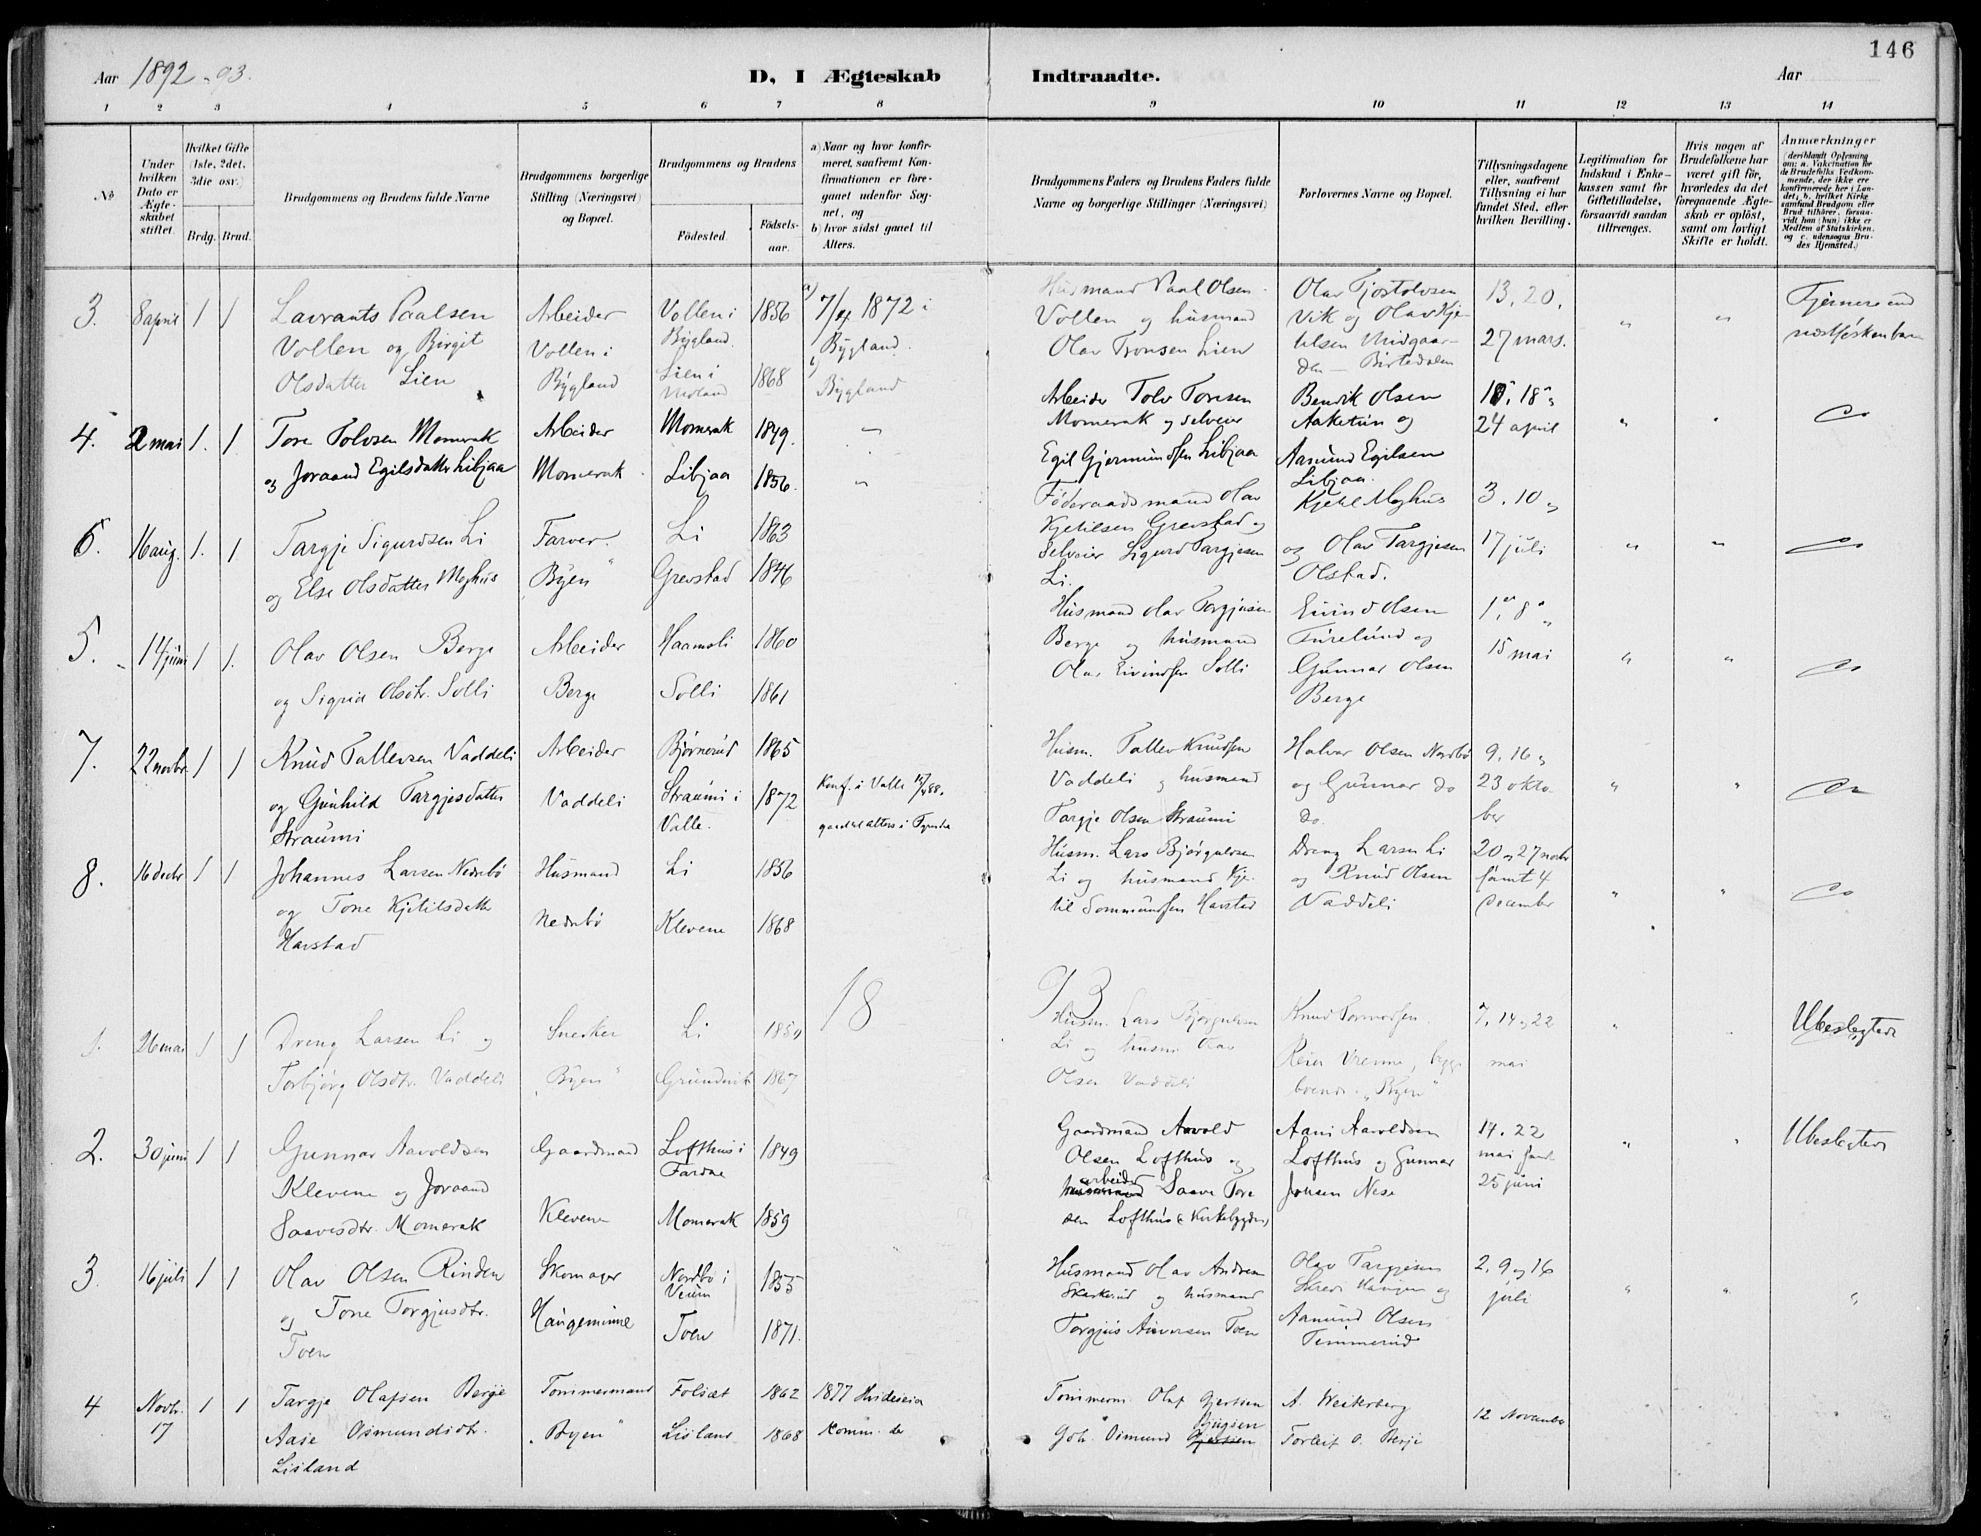 146
Aar 1892-93.
D, I Ægteskab Indtraadte.
Aar
1 2 3 4 5 6 7 8 9 10 11 12 13 14
No
Under hvilken Dato er Ægteskabet stiftet.
Hvilket Gifte (1ste, 2det, 3die osv.)
Brdg. Brud.
Brudgommens og Brudens fulde Navne
Brudgommens borgerlige Stilling (Næringsvei) og Bopæl.
Brudgommens og Brudens
Födested.
Födselsaar.
a) Naar og hvor konfirmeret, saafremt Konfirmationen er foregaaet udenfor Sognet, og
b) hvor sidst gaaet til Alters.
Brudgommens Faders og Brudens Faders fulde Navne og borgerlige Stillinger (Næringsvei)
Forlovernes Navne og Bopæl.
Tillysningsdagene eller, saafremt Tillysning ei har fundet Sted, efter hvilken Bevilling.
Legitimation for Indskud i Enkekassen samt for Giftetilladelse, forsaavidt saadan tiltrænges.
Hvis nogen af Brudefolkene har været gift før, hvorledes da det foregaaende Ægteskab er oplöst, samt om lovligt Skifte er holdt.
Anmærkninger
(deriblandt Oplysning om: a. Vakcination for de Brudefolks Vedkommende, der ikke ere konfirmerede her i Landet, b. hvilket Kirkesamfund Brudgom eller Brud tilhörer, forsaavidt han (hun) ikke er Medlem af Statskirken, og c. udensogns Brudes Hjemsted.)
3. 8 april 1 1
Lavrants Paalsen
Vollen og Birgit
Olsdatter Lien
Arbeider
Vollen i
Bygland
Vollen i
Bygland.
1856
Lien i
1868
a) 7/4 1872 i
Bygland.
b) Bygland
Husmand Paal Olsen
Vollen og husmand
Olav Tronsen Lien
Olav Tjostolvsen
Vik og Olav Kje-
tilsen Midgaar-
den - Birtedalen
13, 20,
27 mars.
" "
4. 2 mai 1. 1.
Tore Tolvsen Momerak
og Joraand Egilsdatter Libjaa
Arbeider
Momerak
Momerak 1849.
Libjaa 1856.
Arbeider Tolv Toresen
Momerak og selveier
Egil Gjermundsen Libjaa
Bendik Olsen
Aaketun og
Aamund Egilsen
Libjaa.
18 "
24 april
" "
6. 16 aug. 1. 1
Targje Sigurdsen Li
og Else Olsdatter Moghus
Farver.
"Byen"
Li 1863
Grevstad 1846
Föderaadsmand Olav
Kjetilsen Grevstad og
selveier Sigurd Targjesen
Li.
Kjetil Moghus
og Olav Targjesen
Olstad.
3. 10 og
17 juli
" "
5. 14 juni 1 1.
Olav Olsen Berge
og Sigrid Olsdtr. Solli
Arbeider
Berge
Haamoli 1860
Solli 1861
Husmand Olav Torgjusen
Berge og husmand
Olav Eivindsen Solli
Eivind Olsen
Furelund og
Gunnar Olsen
Berge
1", 8"
15 mai
" "
7. 22 novbr. 1 1
Knud Tallevsen Vaddeli
og Gunhild Targjesdatter
Straumi
Arbeider
Vaddeli
Bjørnerud 1865
Straumi i
Valle. 1872
Konf. i Valle
Husm. Tallev Knudsen
Vaddeli og husmand
Targje Olsen Straumi
Halvor Olsen Nordbø
og Gunnar do
do.
9, 16 og
23 okto-
ber
" "
8. 16 decbr 1 1
Johannes Larsen Nedrebö
og Tone Kjetilsdatter
Harstad
Husmand
Nedrebö
Li 1856
Klevene 1868
Husm. Lars Bjørgulvsen
Li og husmand Kje-
til Sommundsen Harstad
Dreng Larsen Li
og Knud Olsen
Vaddeli
20 og 27 novbr
samt 4
December
" "
18 93
1. 26 mai 1 1
Dreng Larsen Li og
Torbjörg Olsdtr. Vaddeli
Snedker
"Byen"
Li 1859
Grundvik 1867
Husm. Lars Bjørgulvsen
Li og husm. Olav
Olsen Vaddeli
Knud Tormodsen
Reier Vrenne, begge
boende i "Byen"
7, 14 og 22
mai
" "
Ubeslegtede
2. 30 juni 1 1
Gunnar Aavoldsen
Klevene og Joraand
Saavesdtr. Momerak
Gaardmand
Klevene
Lofthus i
1849
Momerak 1859
Gaardmand Aavold
Olsen Lofthus og
arbeider
husmand Saave Tore
sen Lofthus
Aani Aavoldsen
Lofthus og Gunnar
Johsen Nese
14, 22
mai samt
25 juni
" "
Ubeslegtede
3. 16 juli 1 1
Olav Olsen Rinden
og Tone Torgjusdtr.
Toen
Skomager
Haugeminne
Nordbø i
Veum
1855
Toen 1871.
Husmand Olav Andersen
Skarkerud og husmand
Torgjus Aanversen Toen
Olav Targjesen
Skredi Haugen og
Aamund Olsen
Timmerud
2, 9 og 16
juli
" " "
4 Novbr. 17 1 1
Targje Olafsen Berge
Aase Osmundsdtr.
Lisland
Tommermand
"Byen"
Folsæt 1862
Lisland 1868
1877 Hvideseid
Komm. do
Tömmerm. Olaf Gjertsen
Bjugsen
Osmund Gjertsen
A. Westerberg
Torleif O. Berge
12 November